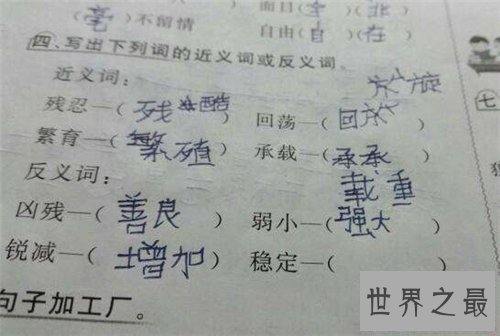 面目(全)(
(毫)不留情 自由(自)(在)
四、写出下列词的近义词或反义词。
近义词：
残忍—(残酷) 回荡—(回放)
七
繁育—(繁殖) 承载—(承承)
反义词： 载重
凶残—(善良) 弱小—(强大)
锐减—(增加) 稳定—( )
句子加工厂。
世界之最